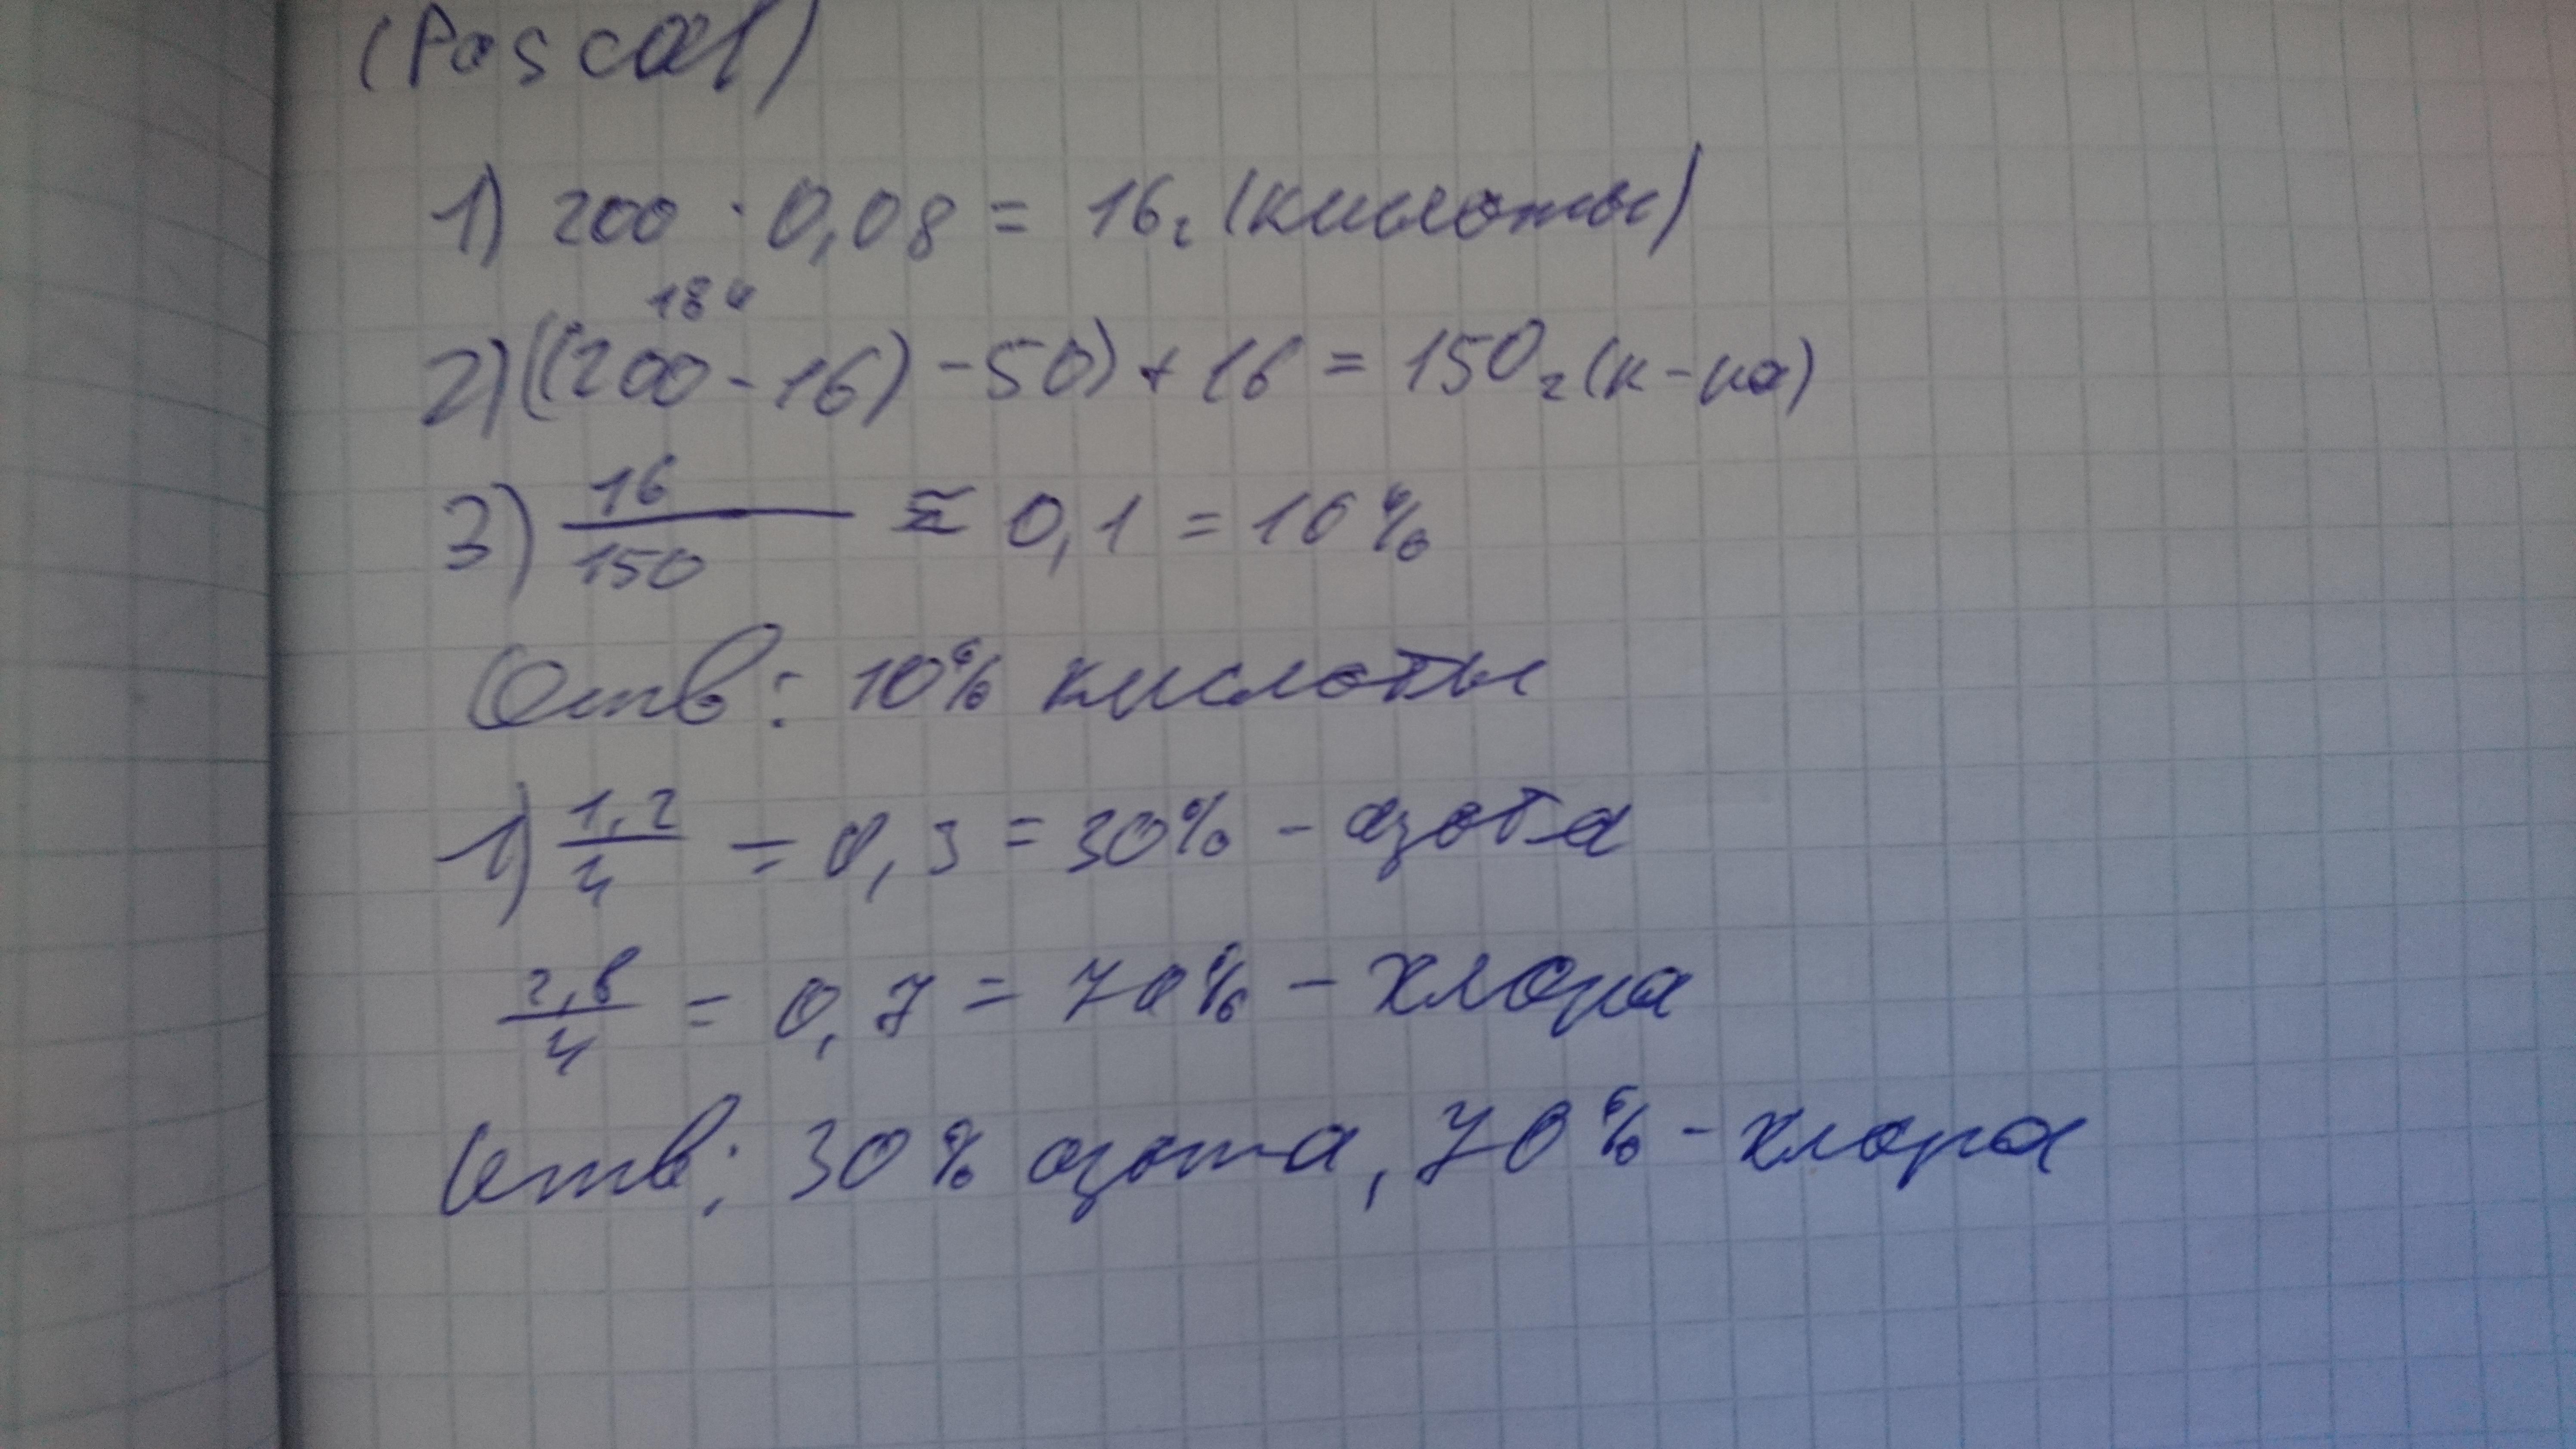 (Pascal)
1) 200 · 0,08 = 16г (кислоты)
184
2) ((200 - 16) - 50) + 16 = 150г (к-ка)
3) 16/150 ≈ 0,1 = 10%
Отв: 10% кислоты
1) 1,2/4 = 0,3 = 30% - азота
2,8/4 = 0,7 = 70% - хлора
Отв: 30% азота, 70% - хлора